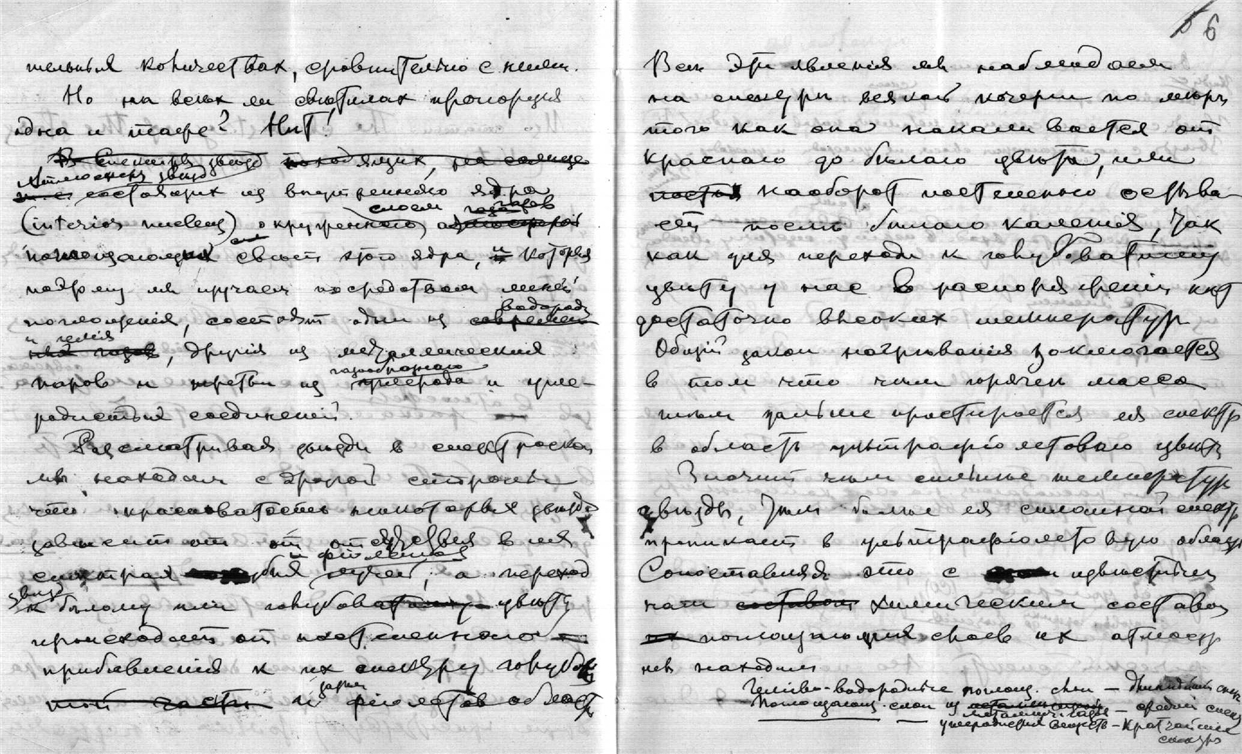 тельныя количествах, сравнительно с ними.
Но на всех ли светилах пропорция
одна и таже? Нет!
В спектрах звезд походящих, на солнце
Атмосферы звезд
состоящих из внутреннего ядра
слоем газов
(interior nucleus) окруженного атмосферой
поглощающих свет этого ядра, и которыя
подъему мы изучаем посредством линий
поглощения, состоят одни из водорода
и гелия, другия из металлических
паров и третьи из газообразного углерода и угле-
родистых соединений
Рассматривая звезды в спектроскоп
мы находим с другой стороны
что красноватость некоторых звезд
зависит от отсутствия в их
спектрах и фиолетовых лучей; а переход
звезд к белому или голубоватому цвету
происходит от постепенного
прибавления к их спектру голубой
части и фиолетов области
6
Все эти явления мы наблюдаем
на спектры всякой кочерги по меръ
того как она накаливается от
краснаго до белаго цвета, или
наоборот постепенно остыва-
ет после белаго каления, так
как для перехода к голубоватому
цвету у нас в распоряжении нет
достаточно высоких температур
Общий закон нагревания заключается
в том что чем горячей масса
тем дальше простирается ея спектр
в область ультрафиолетоваго цвета
Значит чем сильнее температур
звезды, тем более ея сплошной спектр
проникает в ультрафиолетовую област
Сопоставляя это с известным
нам составом химическим составом
поглощающих слоев их атмосф
мы находим
Гелиево-водородные поглощ. слои — длиннейший спек.
Поглощающ. слои из металлич. газов — средний спек
углеродистых веществ — кратчайший
спектр